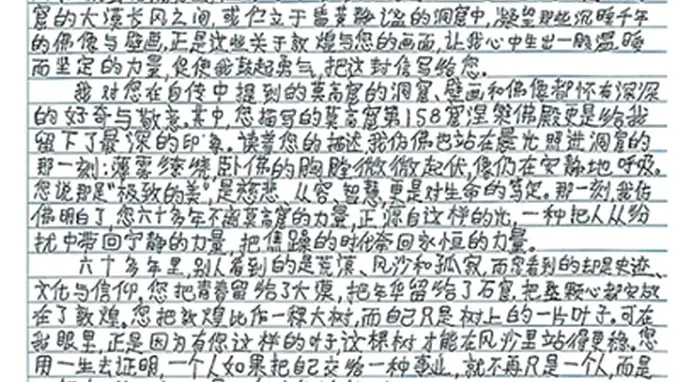 窟的大漠长风之间，或伫立于昏黄静谧的洞窟中，凝望那些沉睡千年
的佛像与壁画。正是这些关于敦煌与您的画面，让我心中生出一股温暖
而坚定的力量，促使我鼓起勇气，把这封信写给您。
我对您在自传中提到的莫高窟的洞窟、壁画和佛像都怀有深深
的好奇与敬意。其中，您描写的莫高窟第158窟涅槃佛殿更是给我
留下了最深的印象。读着您的描述，我仿佛也站在晨光照进洞窟的
那一刻：薄雾缭绕，卧佛的胸膛微微起伏，像仍在安静地呼吸。
您说那是“极致的美”，是慈悲、从容、智慧，更是对生命的笃定。那一刻，我仿
佛明白了，您六十多年不离莫高窟的力量，正源自这样的光，一种把人从纷
扰中带回宁静的力量，把焦躁的时代带回永恒的力量。
六十多年里，别人看到的是荒漠、风沙和孤寂，而您看到的却是史迹、
文化与信仰。您把青春留给了大漠，把年华留给了石窟，把整颗心都安放
在了敦煌。您把敦煌比作一棵大树，而自己只是树上的一片叶子。可在
我眼里，正是因为有您这样的叶子，这棵树才能在风沙里站得更稳。您
用一生去证明，一个人如果把自己交给一种事业，就不再只是一个人，而是